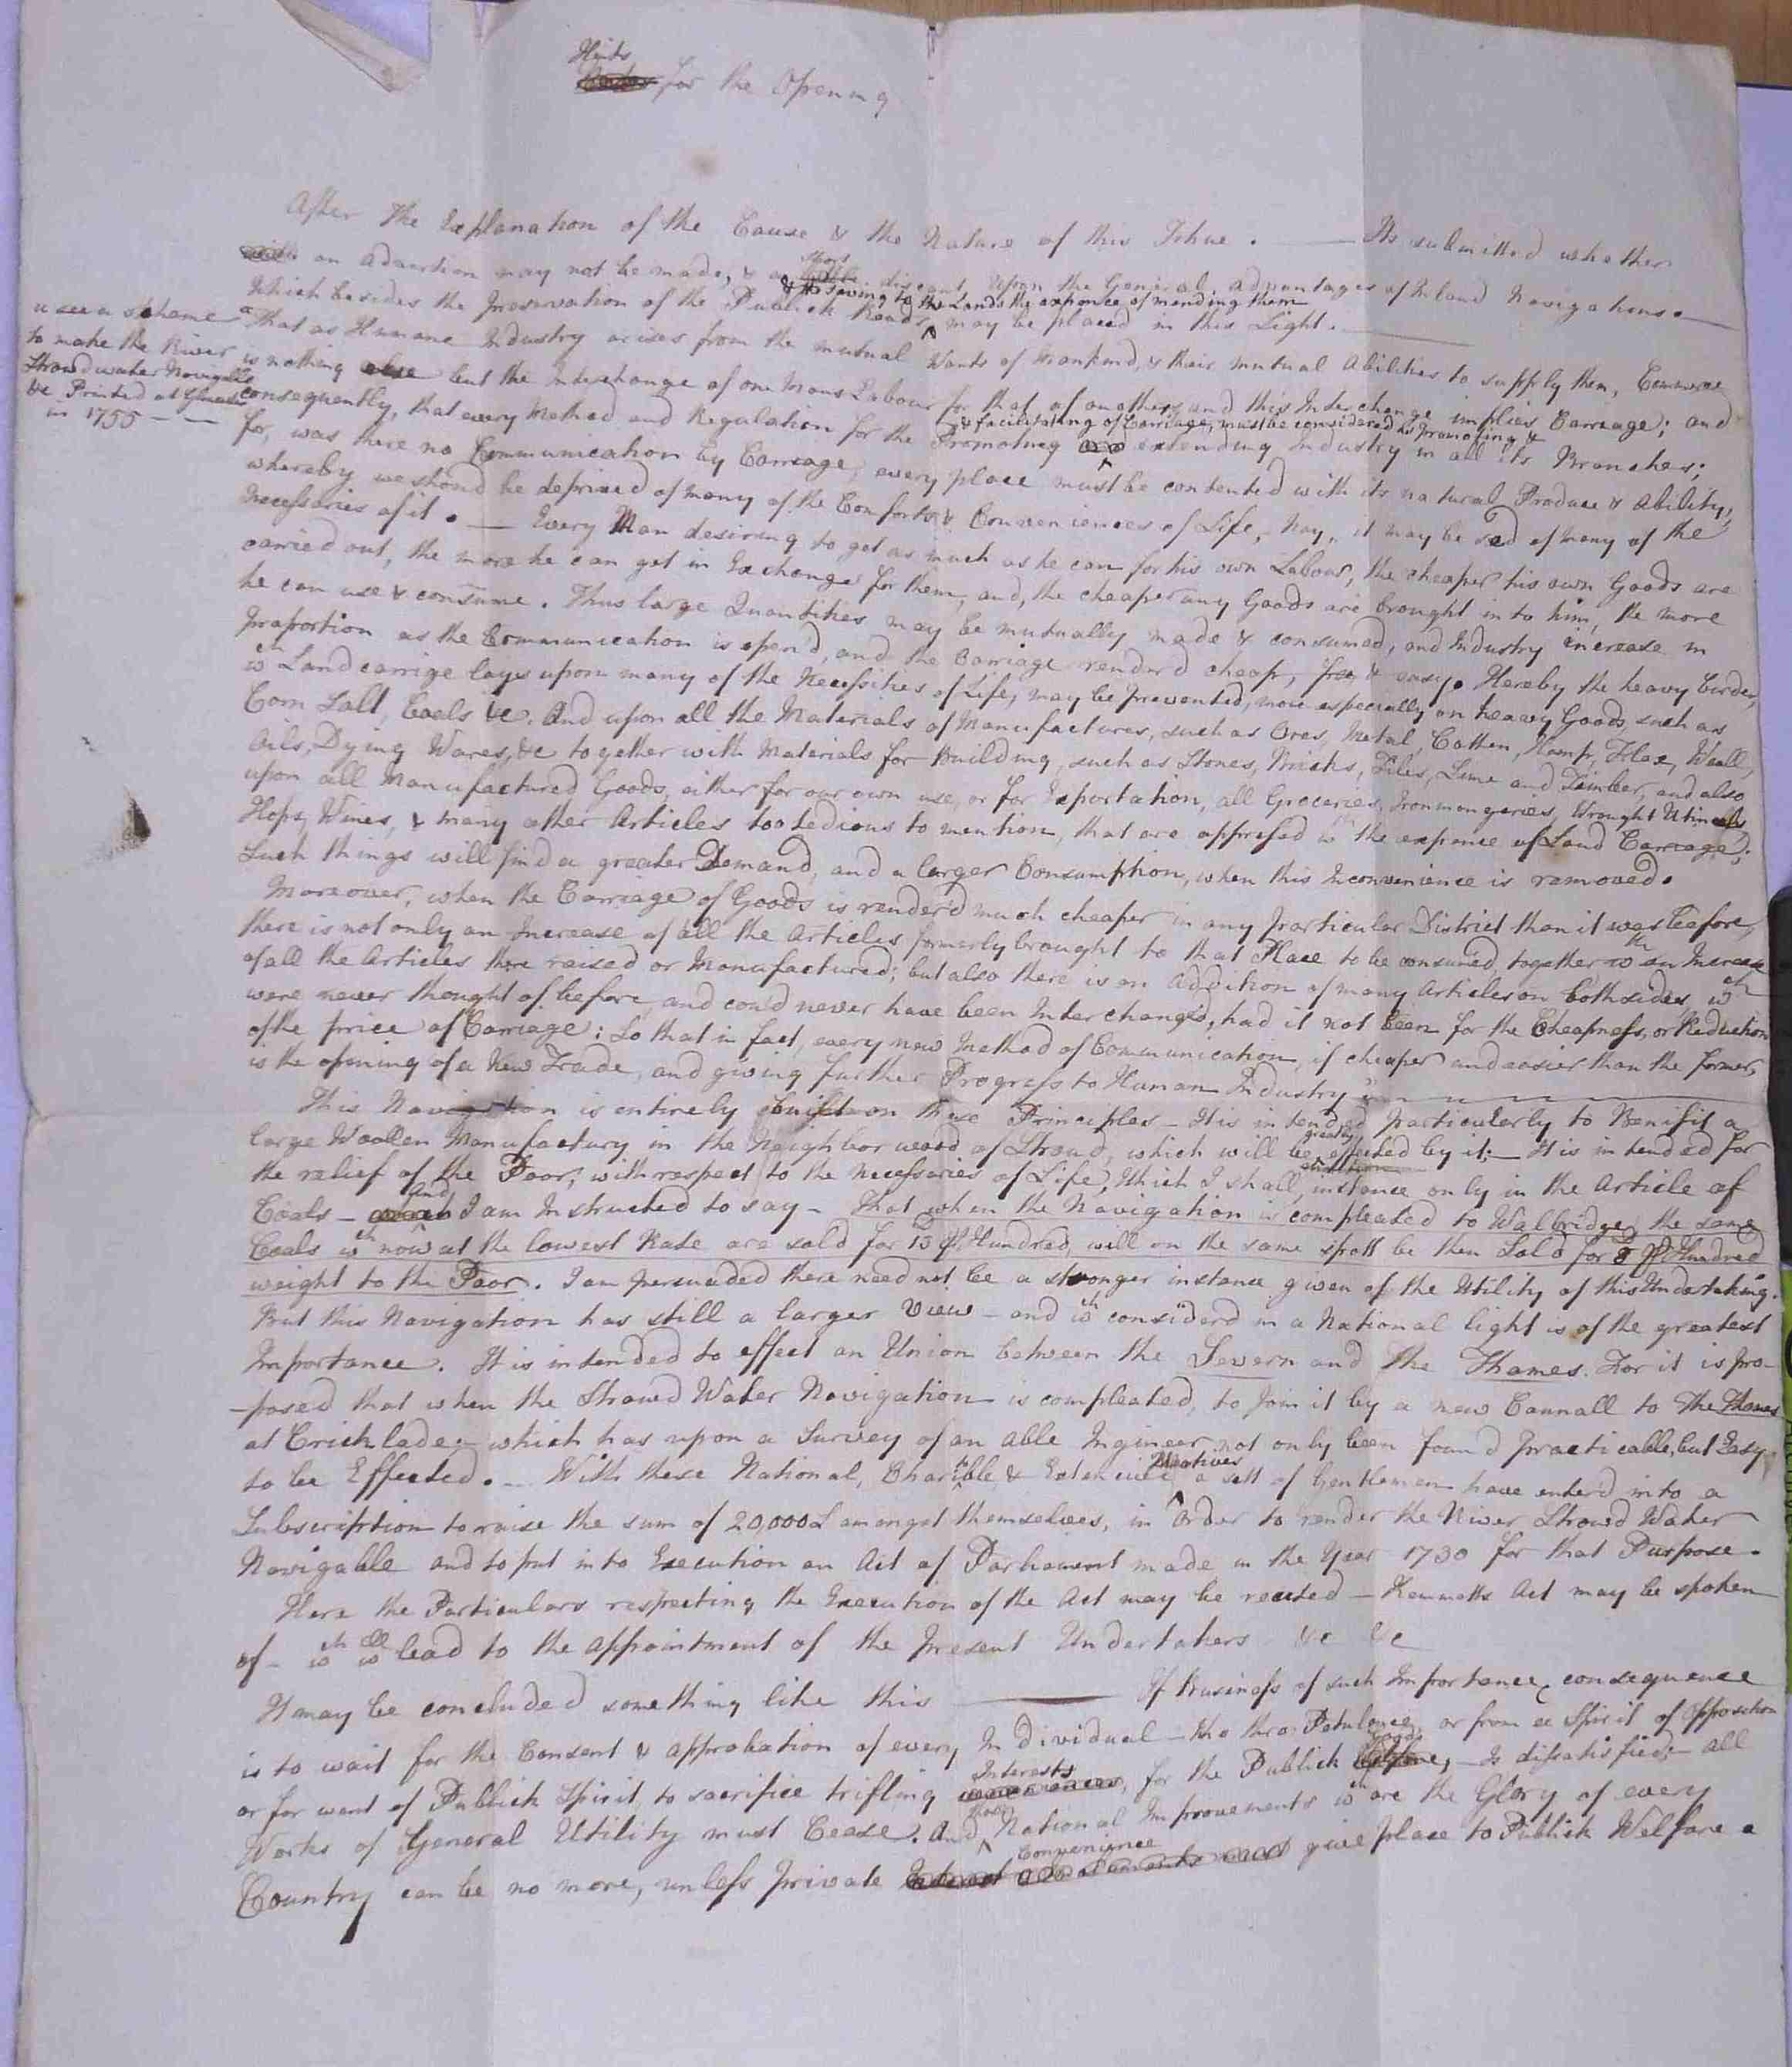 Hints
for the Opening
After the Explanation of the Cause & the Nature of this Ishue. — Its submitted whether
an advertion may not be made, & a short discant upon the General advantages of Inland Navigations.—
Which besides the Preservation of the Publick Roads & the saving to the Lands the expence of mending them may be placed in this Light.—
a That as Humane Industry arises from the mutual Wants of Mankind, & their mutual Abilities to supply them, Commerce
a see a scheme
to make the River
Stroudwater Navigable
&c Printed at Glouster
in 1755 — —
is nothing else but the Interchange of one Mans Labour for that of anothers, and this Interchange implies Carriage; and
consequently, that every Method and Regulation for the Promoting & facilitating of Carriage, must be considered as promoting & extending Industry in all its Branches;
for, was there no Communication by Carriage, every place must be contented with its natural Produce & Ability,
whereby we shoud be deprived of many of the Comforts & Conveniences of Life, Nay, it may be sed of many of the
Necessaries of it. — Every Man desiring to get as much as he can for his own Labour, the cheaper his own Goods are
carried out, the more he can get in Exchange for them, and, the cheaper any Goods are brought in to him, the more
he can use & consume. Thus large Quantities may be mutually made & consumed, and Industry increase in
proportion as the Communication is open'd, and the Carriage renderd cheap, free & easy. Hereby the heavy burden,
wch Land carrige lays upon many of the Necessities of Life, may be prevented, more especially on heavy Goods such as
Corn Salt, Coals &c. And upon all the Materials of Manufactures, such as Ores, Metal, Cotten, Hemp, Flax, Wooll,
Oils, Dying Wares, &c together with Materials for Building, such as Stones, Bricks, Tiles, Lime and Timber, and also
upon all Manufactured Goods, either for our own use, or for Exportation, all Groceries, Ironmongeries, Wrought Utincells
Hops, Wines, & many other Articles too tedious to mention, that are oppresed wth the expence of Land Carriage;
Such things will find a greater Demand, and a larger Consumption, when this Inconvenience is removed.
Moreover, when the Carriage of Goods is render'd much cheaper in any particular District than it was before,
there is not only an Increase of all the Articles formerly brought to that Place to be consumed, together wth an Increase
of all the Articles there raised or Manufactured; but also there is an Addition of many Articles on both sides, wch
were never thought of before, and cou'd never have been Interchanged, had it not been for the Cheapness, or Reduction
of the price of Carriage: So that in fact, every new Method of Communication, if cheaper and easier than the former,
is the opening of a New Trade, and giving further Progress to Human Industry
This Navigation is entirely built on these Principles — It is intended particularly to Benifit a
large Woollen Manufactury in the Neighborwood of Stroud, which will be greatly effected by it;— It is intended for
the relief of the Poor; with respect to the necessaries of Life, Which I shall instance only in the Article of
Coals — and I am Instructed to say — That when the Navigation is compleated to Walbridge, the same
Coals wch now at the lowest Rate are sold for 13d pr Hundred, will on the same spott be then Sold for 8d pr Hundred
weight to the Poor. I am persuaded there need not be a stronger instance given of the Utility of this Undertaking.
But this Navigation has still a larger View — and wch considerd in a National light is of the greatest
Importance. It is intended to effect an Union between the Severn and the Thames. For it is pro-
-posed that when the Stroud Water Navigation is compleated, to join it by a new Cannall to the Thames
at Cricklade;— which has upon a Survey of an able Ingineer not only been found practicable, but Easy
to be Effected. — With these National, Charitible & Extencive Motives a sett of Gentlemen have enterd into a
Subscription to raise the sum of 20,000L amongst themselves, in Order to render the River Strowd Water
Navigable and to put into Execution an Act of Parliament made in the Year 1730 for that Purpose.
Here the Particulars respecting the Execution of the Act may be recited — Kemmetts Act may be spoken
of — wch will lead to the appointment of the present Undertakers &c &c
It may be concluded something like this ——— If Business of such Importance & consequence
is to wait for the Consent & approbation of every Individual — tho thro Petulance, or from a Spirit of opposition
or for want of Publick Spirit, to sacrifice trifling Interests, for the Publick Good, — Is dissatisfied;— all
Works of General Utility must Cease. And those National Improvements wch are the Glory of every
Country can be no more, unless private Convenience give place to Publick Welfare.